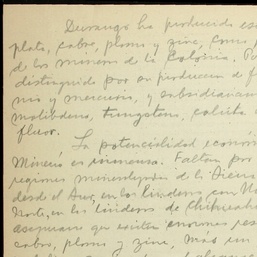 Durango ha producido
plata, cobre, plomo y zinc, como
de los mineros de la Colonia.
distinguido por su produccion de
nio y mercurio, y subsidiariam
molibdeno, tungsteno,
fluor.
La potencialidad econom
Minera es inmensa. Faltan por
regiones mineralizadas de la Sierra
desde el Sur, en los linderos con Na
Norte, en los linderos de Chihuahu
asegurarse que existen enormes res
cobre, plomo y zinc, mas un